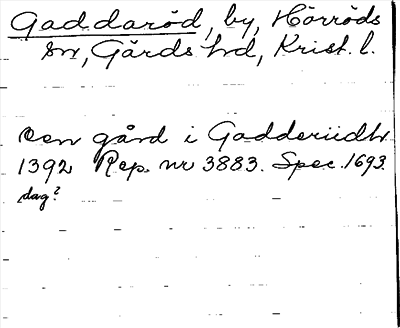 Gaddaröd, by, Hörröds
sn, Gärds hd, Krist. l.
een gård i Gadderiidh
1392 Rep. nr 3883. Spec. 1693.
dag?